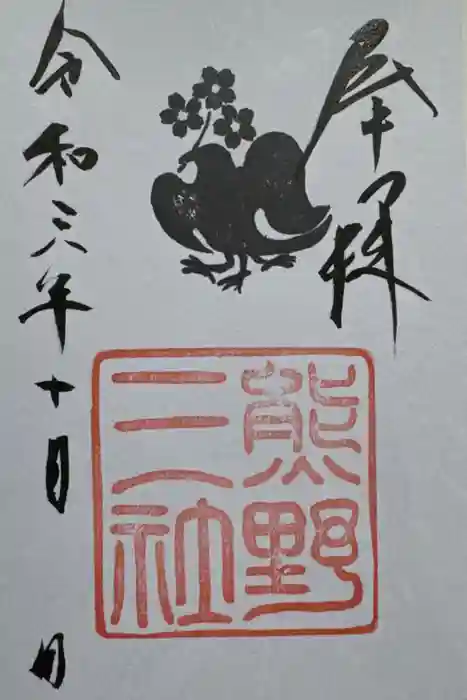 奉拝
熊野
三社
令和三年十月
月